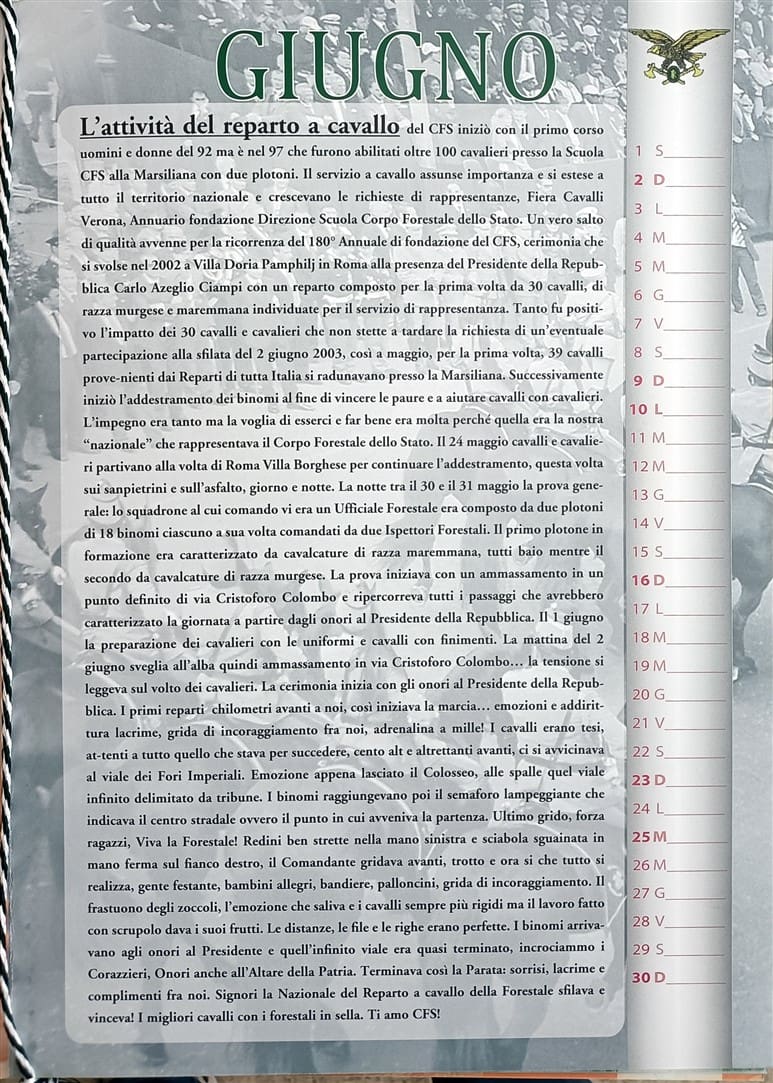 GIUGNO
L'attività del reparto a cavallo del CFS iniziò con il primo corso
uomini e donne del 92 ma è nel 97 che furono abilitati oltre 100 cavalieri presso la Scuola
CFS alla Marsiliana con due plotoni. Il servizio a cavallo assunse importanza e si estese a
tutto il territorio nazionale e crescevano le richieste di rappresentanze, Fiera Cavalli
Verona, Annuario fondazione Direzione Scuola Corpo Forestale dello Stato. Un vero salto
di qualità avvenne per la ricorrenza del 180° Annuale di fondazione del CFS, cerimonia che
si svolse nel 2002 a Villa Doria Pamphilj in Roma alla presenza del Presidente della Repub-
blica Carlo Azeglio Ciampi con un reparto composto per la prima volta da 30 cavalli, di
razza murgese e maremmana individuate per il servizio di rappresentanza. Tanto fu positi-
vo l'impatto dei 30 cavalli e cavalieri che non stette a tardare la richiesta di un'eventuale
partecipazione alla sfilata del 2 giugno 2003, così a maggio, per la prima volta, 39 cavalli
prove-nienti dai Reparti di tutta Italia si radunavano presso la Marsiliana. Successivamente
iniziò l'addestramento dei binomi al fine di vincere le paure e a aiutare cavalli con cavalieri.
L'impegno era tanto ma la voglia di esserci e far bene era molta perché quella era la nostra
“nazionale” che rappresentava il Corpo Forestale dello Stato. Il 24 maggio cavalli e cavalie-
ri partivano alla volta di Roma Villa Borghese per continuare l'addestramento, questa volta
sui sanpietrini e sull'asfalto, giorno e notte. La notte tra il 30 e il 31 maggio la prova gene-
rale: lo squadrone al cui comando vi era un Ufficiale Forestale era composto da due plotoni
di 18 binomi ciascuno a sua volta comandati da due Ispettori Forestali. Il primo plotone in
formazione era caratterizzato da cavalcature di razza maremmana, tutti baio mentre il
secondo da cavalcature di razza murgese. La prova iniziava con un ammassamento in un
punto definito di via Cristoforo Colombo e ripercorreva tutti i passaggi che avrebbero
caratterizzato la giornata a partire dagli onori al Presidente della Repubblica. Il 1 giugno
la preparazione dei cavalieri con le uniformi e cavalli con finimenti. La mattina del 2
giugno sveglia all'alba quindi ammassamento in via Cristoforo Colombo… la tensione si
leggeva sul volto dei cavalieri. La cerimonia inizia con gli onori al Presidente della Repub-
blica. I primi reparti chilometri avanti a noi, così iniziava la marcia… emozioni e addirit-
tura lacrime, grida di incoraggiamento fra noi, adrenalina a mille! I cavalli erano tesi,
at-tenti a tutto quello che stava per succedere, cento alt e altrettanti avanti, ci si avvicinava
al viale dei Fori Imperiali. Emozione appena lasciato il Colosseo, alle spalle quel viale
infinito delimitato da tribune. I binomi raggiungevano poi il semaforo lampeggiante che
indicava il centro stradale ovvero il punto in cui avveniva la partenza. Ultimo grido, forza
ragazzi, Viva la Forestale! Redini ben strette nella mano sinistra e sciabola sguainata in
mano ferma sul fianco destro, il Comandante gridava avanti, trotto e ora si che tutto si
realizza, gente festante, bambini allegri, bandiere, palloncini, grida di incoraggiamento. Il
frastuono degli zoccoli, l'emozione che saliva e i cavalli sempre più rigidi ma il lavoro fatto
con scrupolo dava i suoi frutti. Le distanze, le file e le righe erano perfette. I binomi arriva-
vano agli onori al Presidente e quell'infinito viale era quasi terminato, incrociammo i
Corazzieri, Onori anche all'Altare della Patria. Terminava così la Parata: sorrisi, lacrime e
complimenti fra noi. Signori la Nazionale del Reparto a cavallo della Forestale sfilava e
vinceva! I migliori cavalli con i forestali in sella. Ti amo CFS!
1 S
2 D
3 L
4 M
5 M
6 G
7 V
8 S
9 D
10 L
11 M
12 M
13 G
14 V
15 S
16 D
17 L
18 M
19 M
20 G
21 V
22 S
23 D
24 L
25 M
26 M
27 G
28 V
29 S
30 D